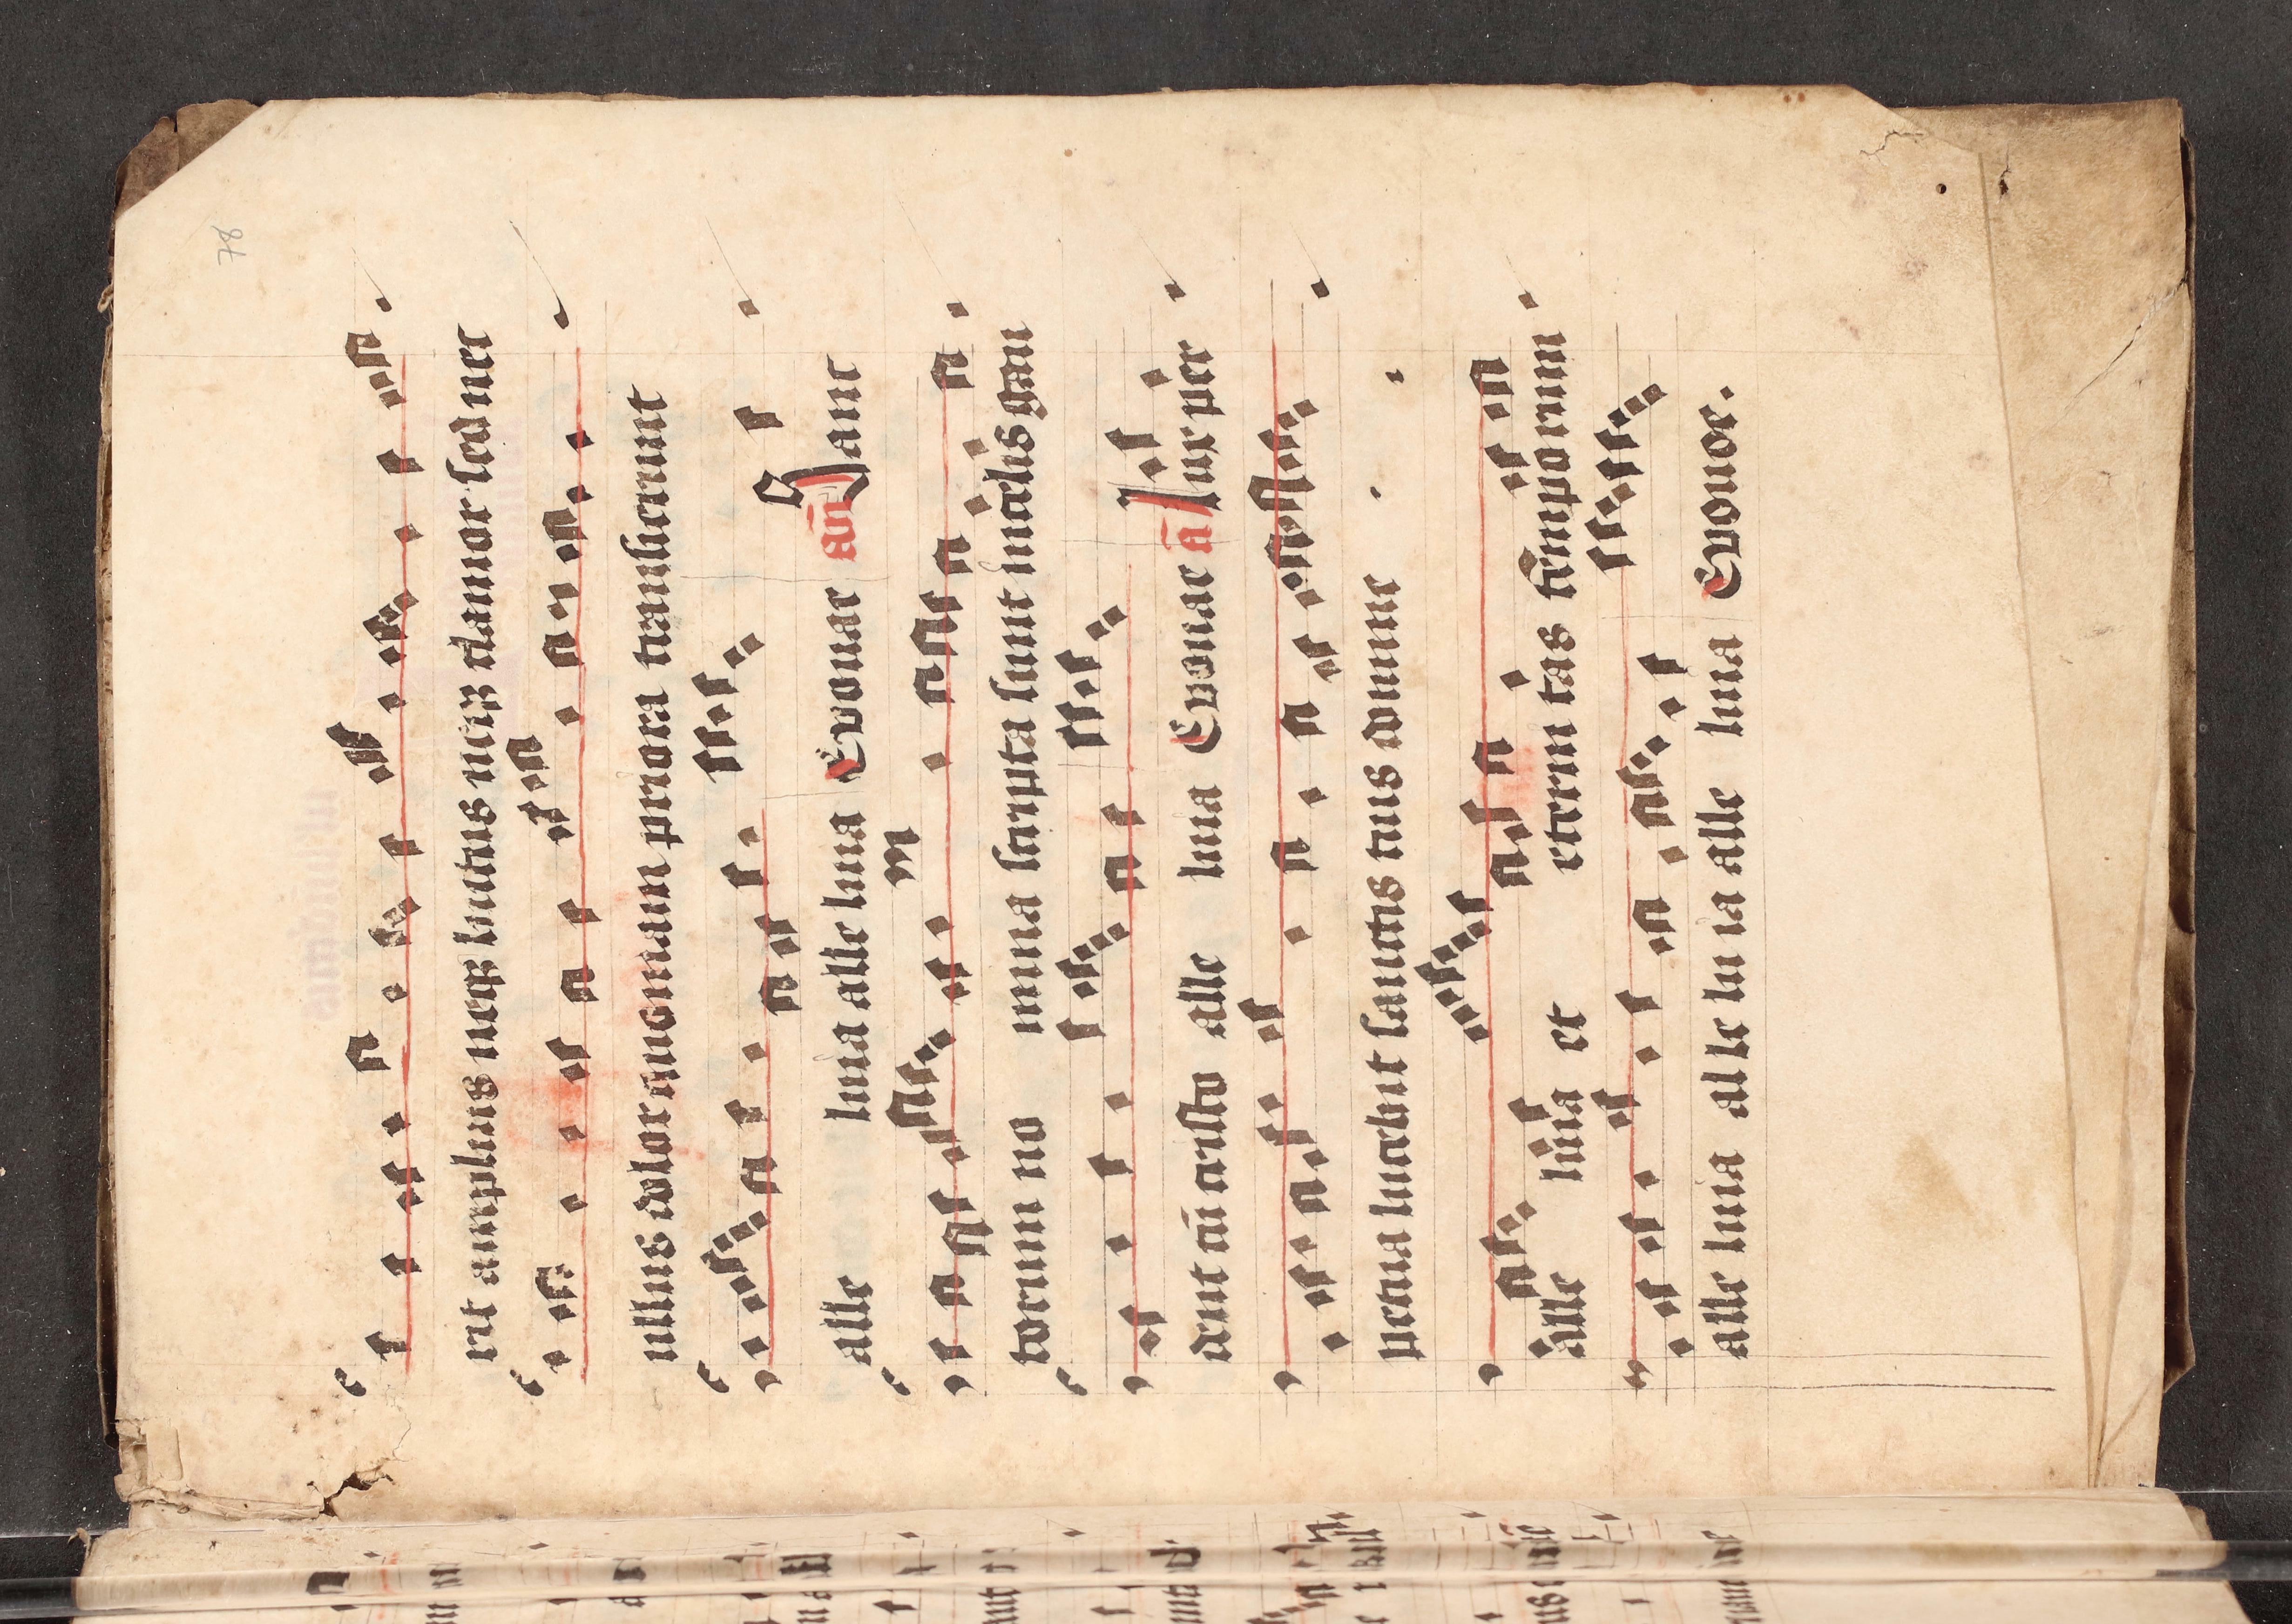 78
rit amplius neqꝫ luctus neqꝫ clamor sed nec
ullus dolor quoniam priora transierunt
alle luia alle luia Evovae an̄ Sanc
torum no mina scripta sunt in celis gau
dent cū cristo alle luia Evovae a̅ Lux per
petua lucebit sanctis tuis domine
alle luia et eterni tas temporum
alle luia al le lu ia alle luia Evovoe.